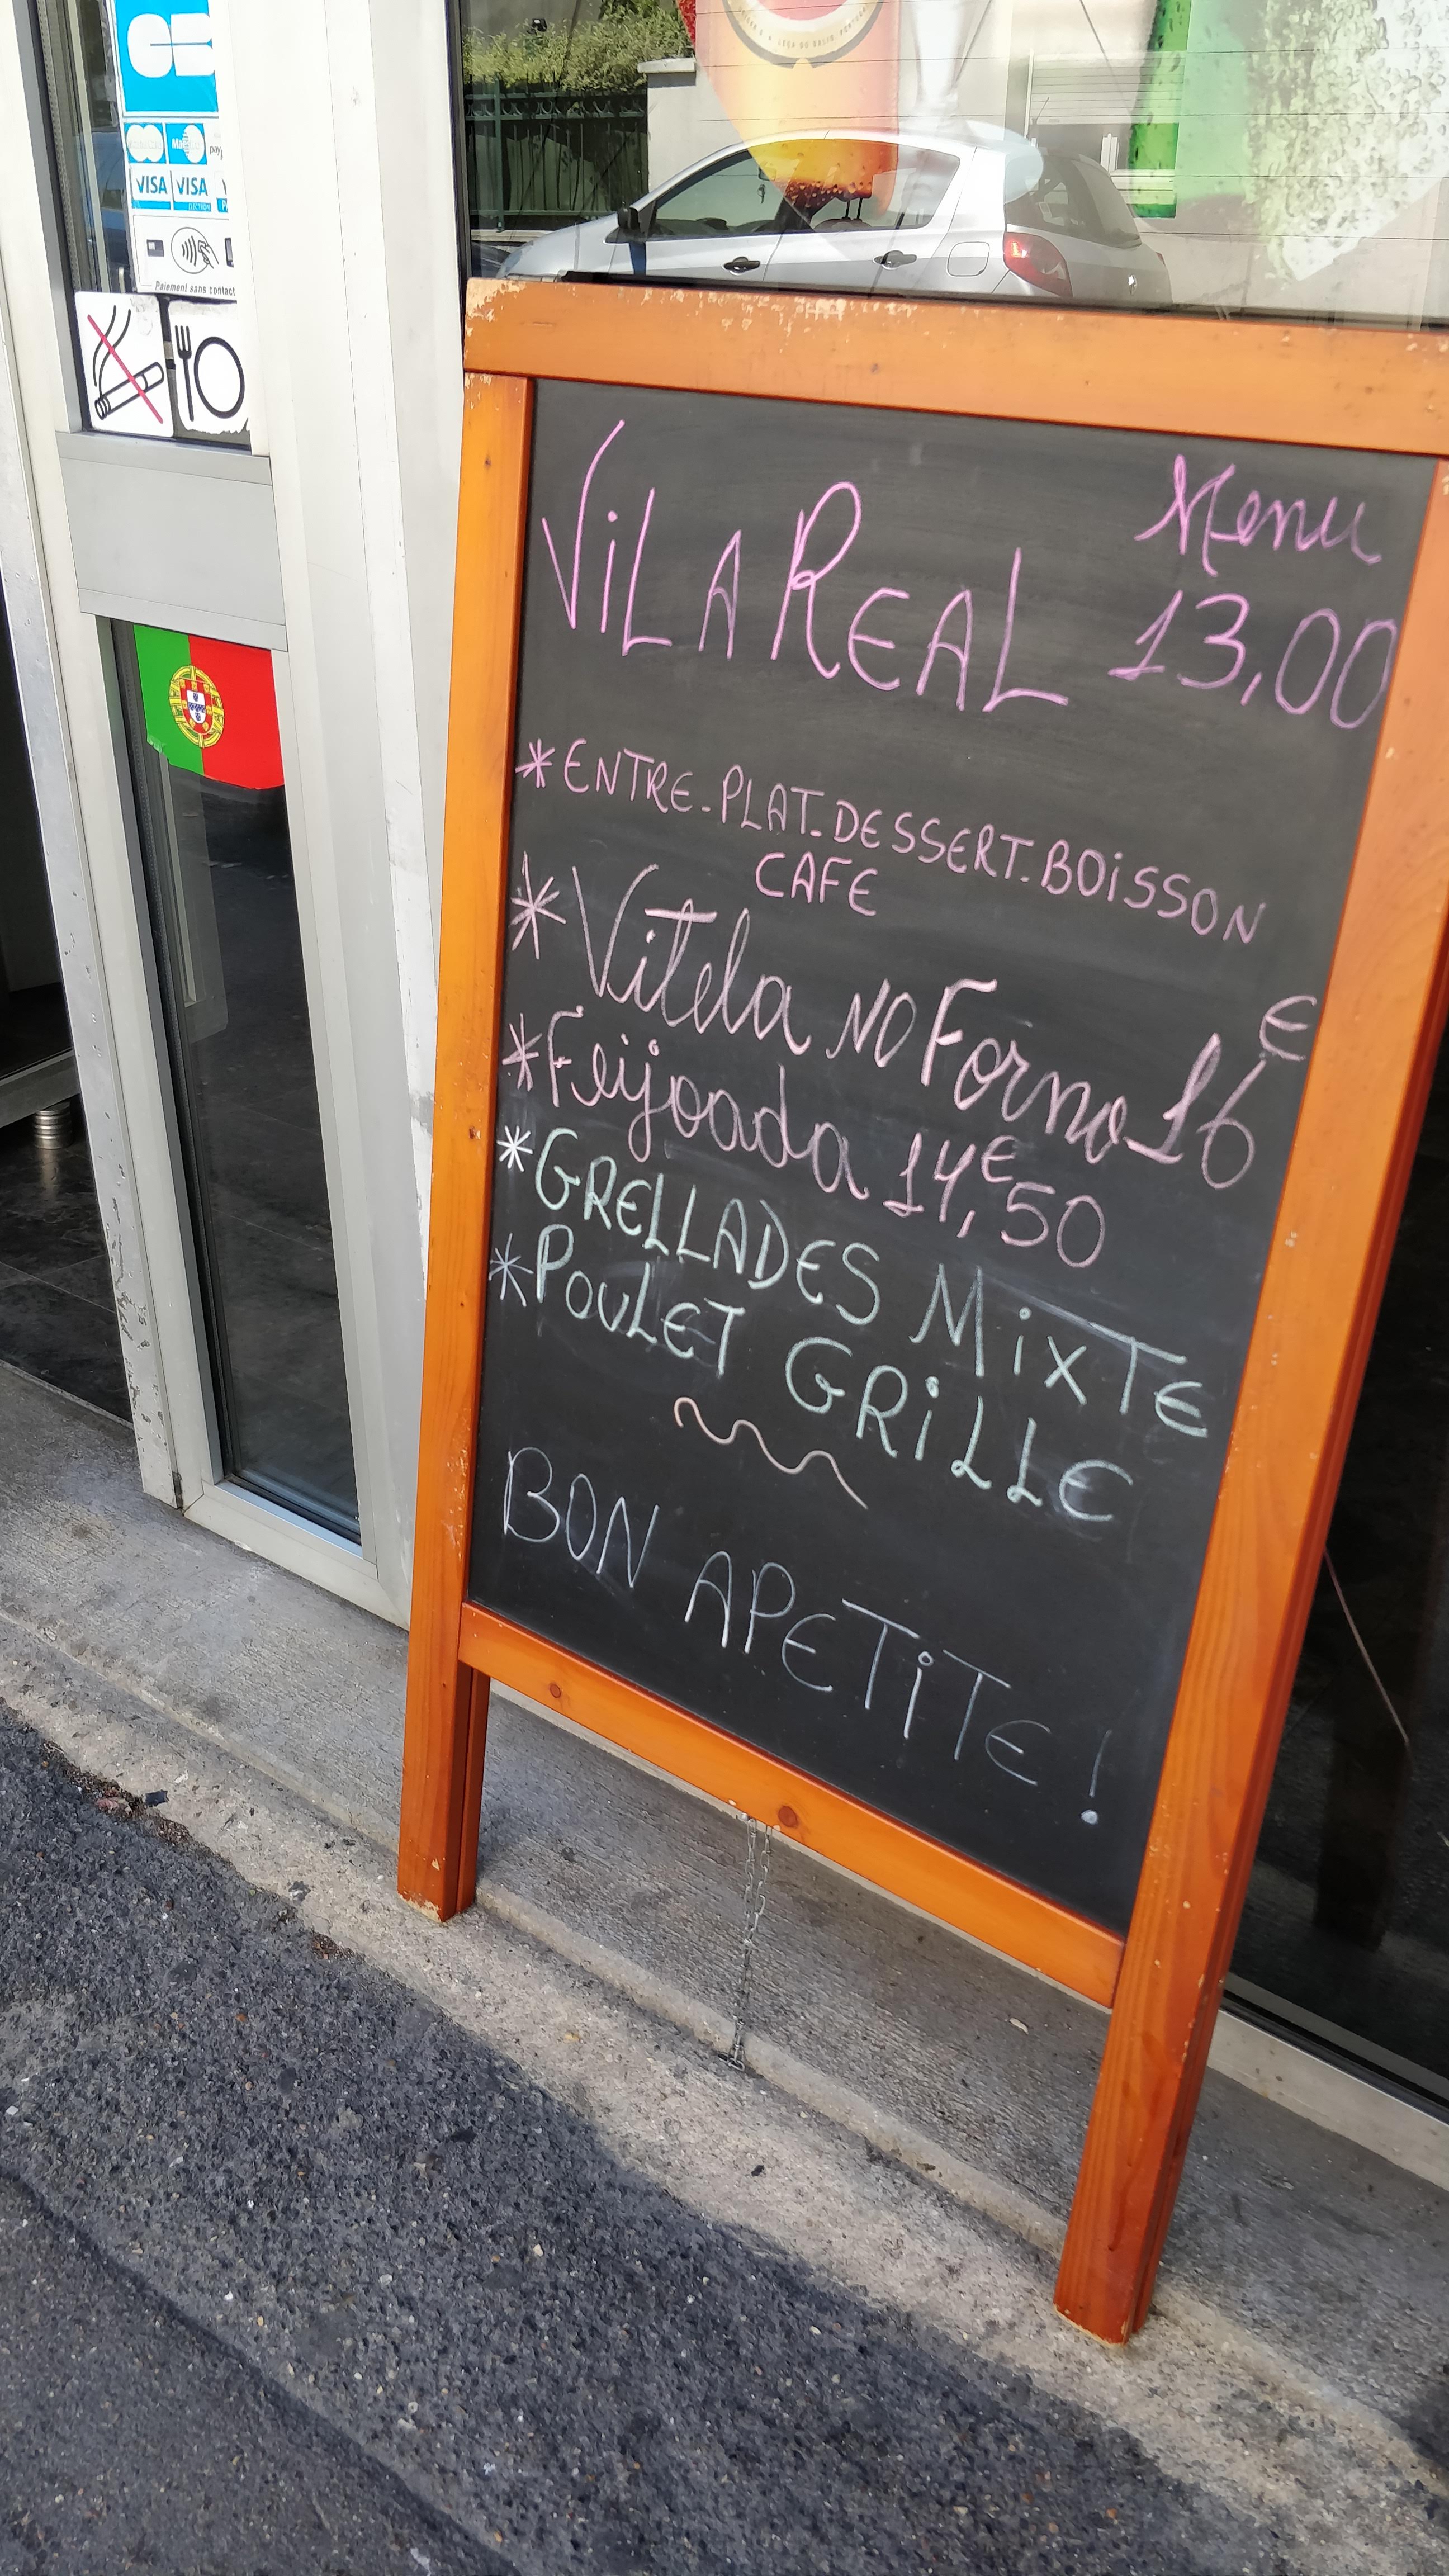 VISA VISA
ELECTRON
Paiement sans contact
ViLA REAL
Menu
13,00
*ENTRE-PLAT-DESSERT-BOiSSON
CAFE
*Vitela NO Forno 16€
*Feijoada 14€,50
*GRELLADES MiXTE
*POULET GRiLLE
BON APETiTE!